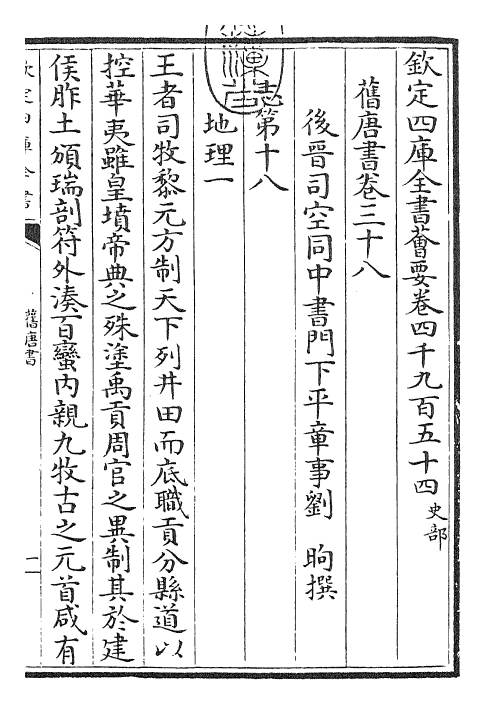 欽定四庫全書薈要卷四千九百五十四 史部
舊唐書卷三十八
後晉司空同中書門下平章事劉 昫撰
志第十八
地理一
王者司牧黎元方制天下列井田而底職貢分縣道以
控華夷雖皇墳帝典之殊塗禹貢周官之異制其於建
侯胙土頒瑞剖符外湊百蠻内親九牧古之元首咸有
欽定四庫全書
舊唐書
一